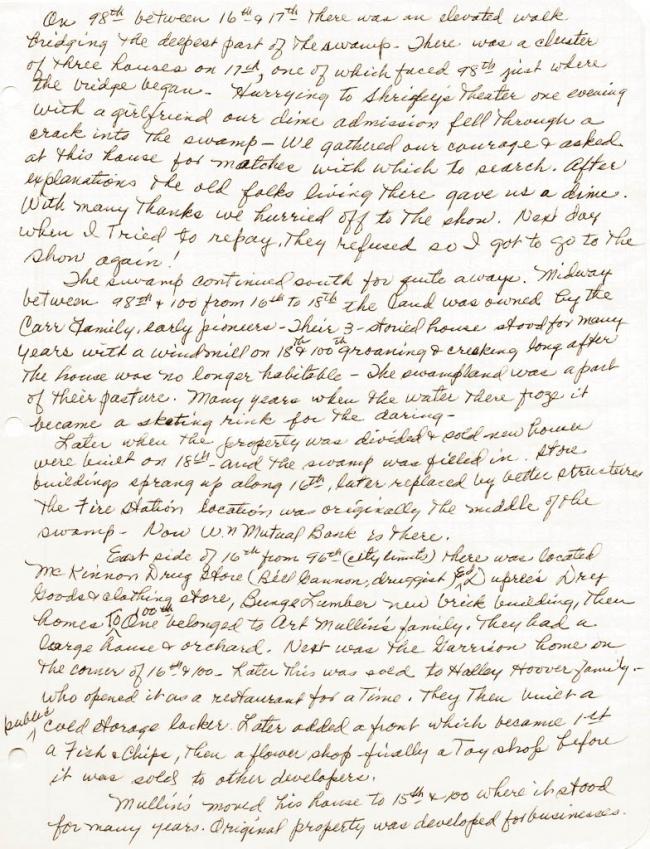 On 98th between 16th & 17th there was an elevated walk
bridging the deepest part of the swamp - There was a cluster
of three houses on 17th, one of which faced 98th just where
the bridge began - Hurrying to Shrigley's Theater one evening
with a girlfriend our dime admission fell through a
crack into the swamp - We gathered our courage & asked
at this house for matches with which to search. After
explanations the old folks living there gave us a dime.
With many thanks we hurried off to the show. Next day
when I tried to repay, they refused so I got to go to the
show again!
The swamp continued south for quite aways. Midway
between 98th & 100 from 16th to 18th the land was owned by the
Carr family, early pioneers - Their 3-storied house stood for many
years with a windmill on 18th & 100th groaning & creaking long after
the house was no longer habitable - The swampland was a part
of their pasture. Many years when the water there froze it
became a skating rink for the daring -
Later when the property was divided & sold new homes
were built on 18th - and the swamp was filled in. Store
buildings sprang up along 16th, later replaced by better structures
The Fire Station location was originally the middle of the
swamp - Now W.n Mutual Bank is there.
East side of 16th from 96th (city limits) there was located
McKinnon Drug Store (Bill Cannon, druggist) Ed Dupree's Dry
Goods & clothing store, Bunge Lumber new brick building, then
homes to 100th One belonged to Art Mullin's family. They had a
large house & orchard. Next was the Garrison home on
the corner of 16th & 100 - Later this was sold to Halley Hoover family -
who opened it as a restaurant for a time. They then built a
public cold storage locker. Later added a front which became 1st
a Fish & Chips, then a flower shop - finally a Toy shop before
it was sold to other developers.
Mullin's moved his house to 15th & 100 where it stood
for many years. Original property was developed for businesses.